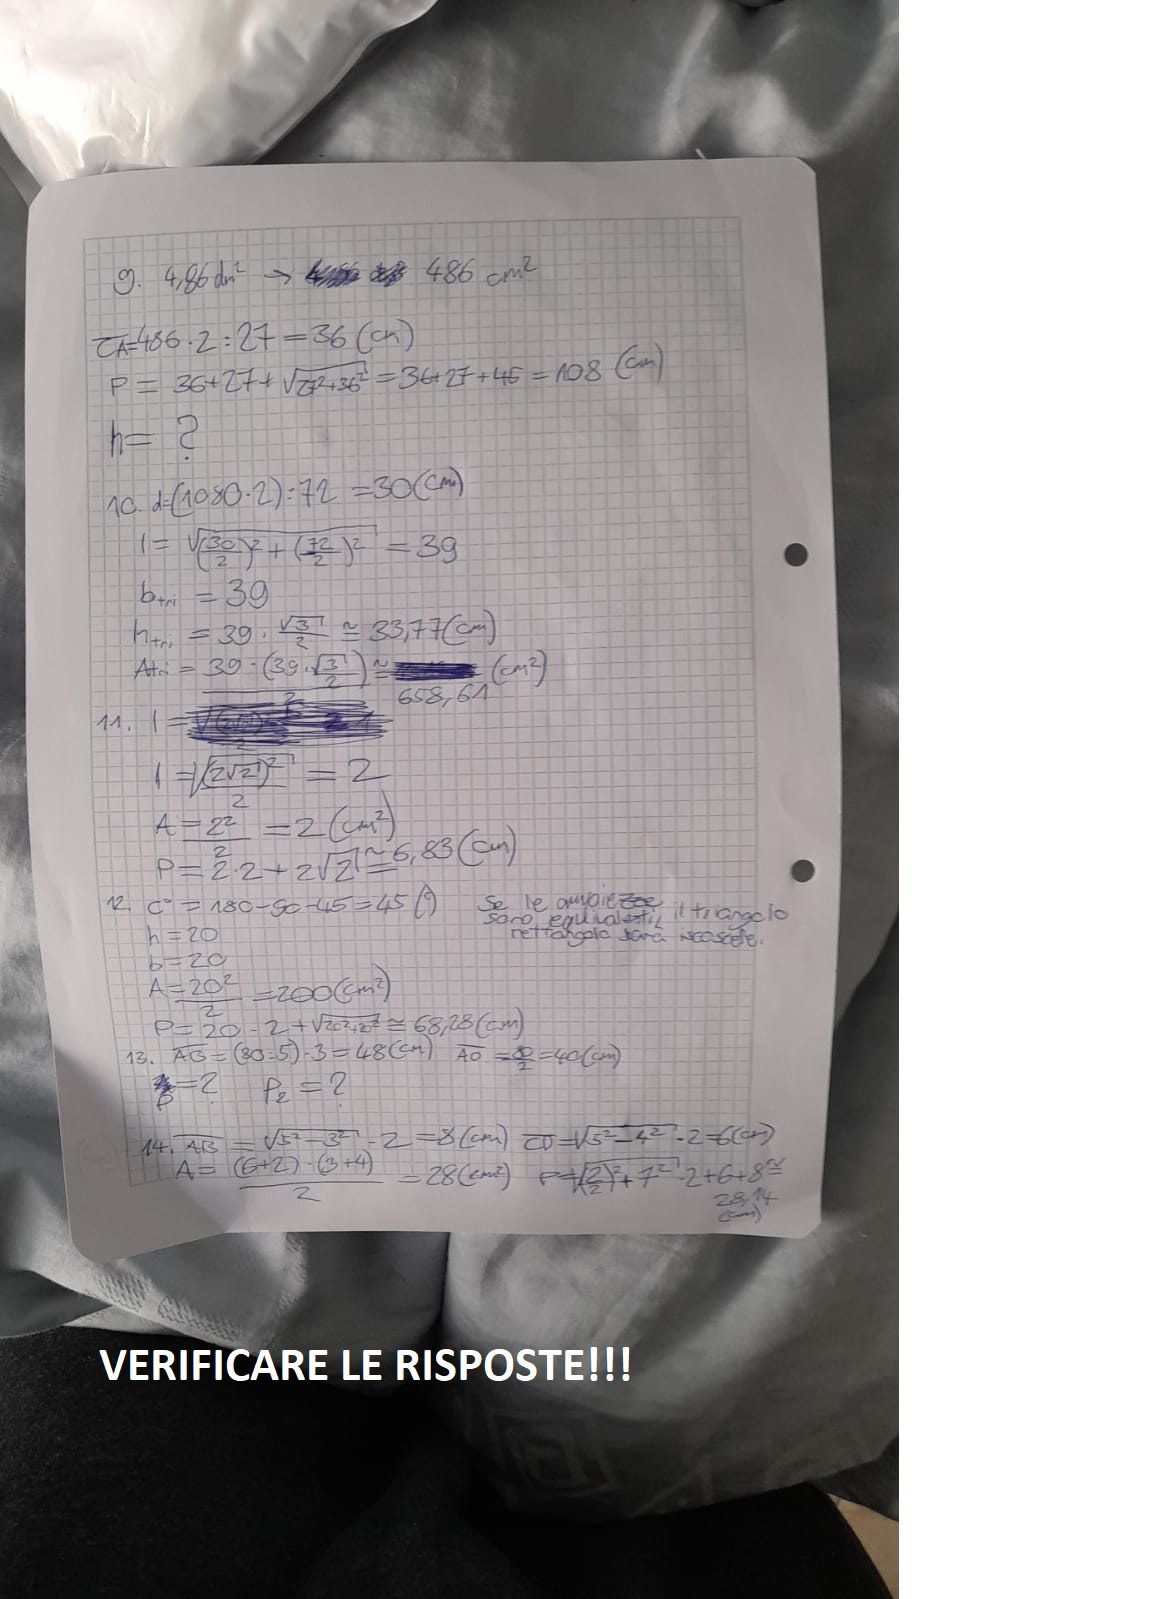 9. 4,86 dm² → 486 cm²
CA=486·2:27=36(cm)
P = 36+27+√27²+36² = 36+27+45 = 108 (cm)
h= ?
10. d=(1080·2):72 = 30(cm)
l = √(30/2)²+(72/2)² = 39
b tri = 39
h tri = 39·√3/2 ≅ 33,77(cm)
A tri = 39·(39·√3/2)/2 ≅ 658,61 (cm²)
11. l =
l = √(2√2)²/2 = 2
A = 2²/2 = 2 (cm²)
P = 2·2+2√2 ≅ 6,83(cm)
12. C° = 180-90-45=45(°) Se le ampiezze
sono equivalenti, il triangolo
rettangolo sarà isoscele.
h = 20
b = 20
A = 20²/2 = 200(cm²)
P = 20·2+√20²+20² ≅ 68,28(cm)
13. AB = (80:5)·3=48(cm) AO = 80/2 = 40(cm)
P =? P2 = ?
14. AB = √5²-3²·2 = 8(cm) CD = √5²-4²·2=6(cm)
A = (6+2)·(3+4)/2 = 28(cm²) P=√(2/2)²+7²·2+6+8≅
28,14
(cm)
VERIFICARE LE RISPOSTE!!!